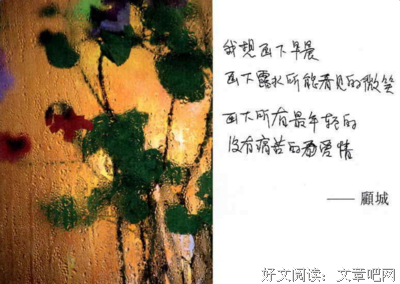 我想画下早晨
画下露水所能看见的微笑
画下所有最年轻的
没有痛苦的爱情
—— 顧城
好文阅读：文章吧网